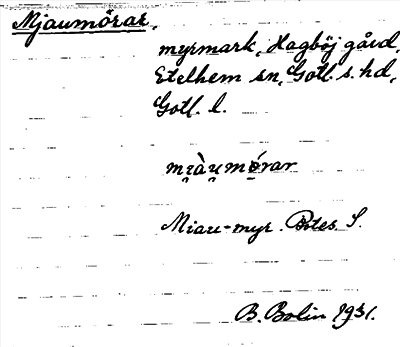 Mjaumörar,
myrmark, Hagböj gård,
Etelhem sn, Gotl. s. hd,
Gotl. l.
mi̯àu̯mǫ́rar
Miau-myr. Ibles. S.
B. Bolin 1931.